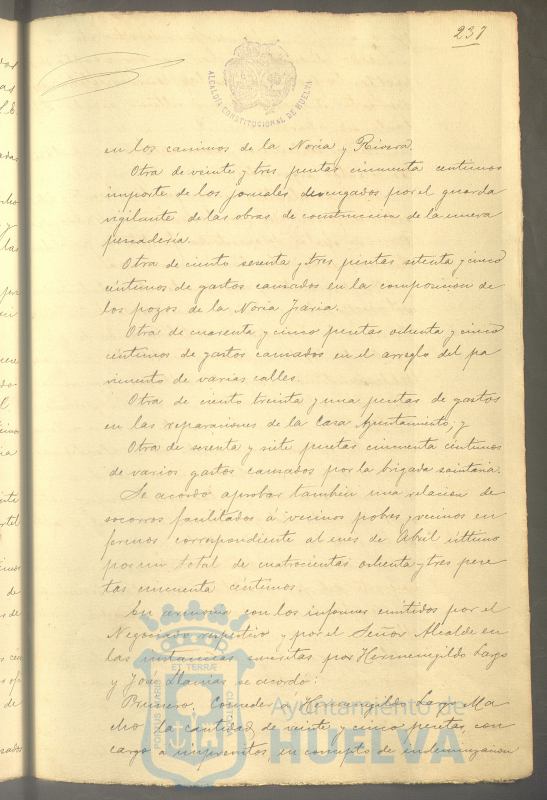 237
ALCALDÍA CONSTITUCIONAL DE HUELVA
en los caminos de la Noria y Rivera.
Otra de veinte y tres pesetas cincuenta centimos
importe de los jornales devengados por el guarda
vigilante de las obras de construccion de la nueva
pescaderia.
Otra de ciento sesenta y tres pesetas setenta y cinco
centimos de gastos causados en la composicion de
los pozos de la Noria
Otra de cuarenta y cinco pesetas ochenta y cinco
centimos de gastos causados en el arreglo del pa
vimento de varias calles.
Otra de ciento treinta y una pesetas de gastos
en las reparaciones de la Casa Ayuntamiento; y
Otra de sesenta y siete pesetas cincuenta centimos
de varios gastos causados por la brigada sanitaria.
Se acordó aprobar tambien una relacion de
socorros facilitados á vecinos pobres y vecinos en
fermos correspondiente al mes de Abril último
por un total de cuatrocientas ochenta y tres pese
tas cincuenta céntimos.
En armonia con los informes emitidos por el
Negociado respectivo y por el Señor Alcalde en
las instancias suscritas por Hermenegildo Largo
y José Llanias se acordó:
Primero. Conceder a Hermenegildo Largo Ma
cho la cantidad de veinte y cinco pesetas, con
cargo a imprevistos en concepto de indemnizacion
PORTUS MARIS ET TERRÆ CUSTODIA
Ayuntamiento de
HUELVA